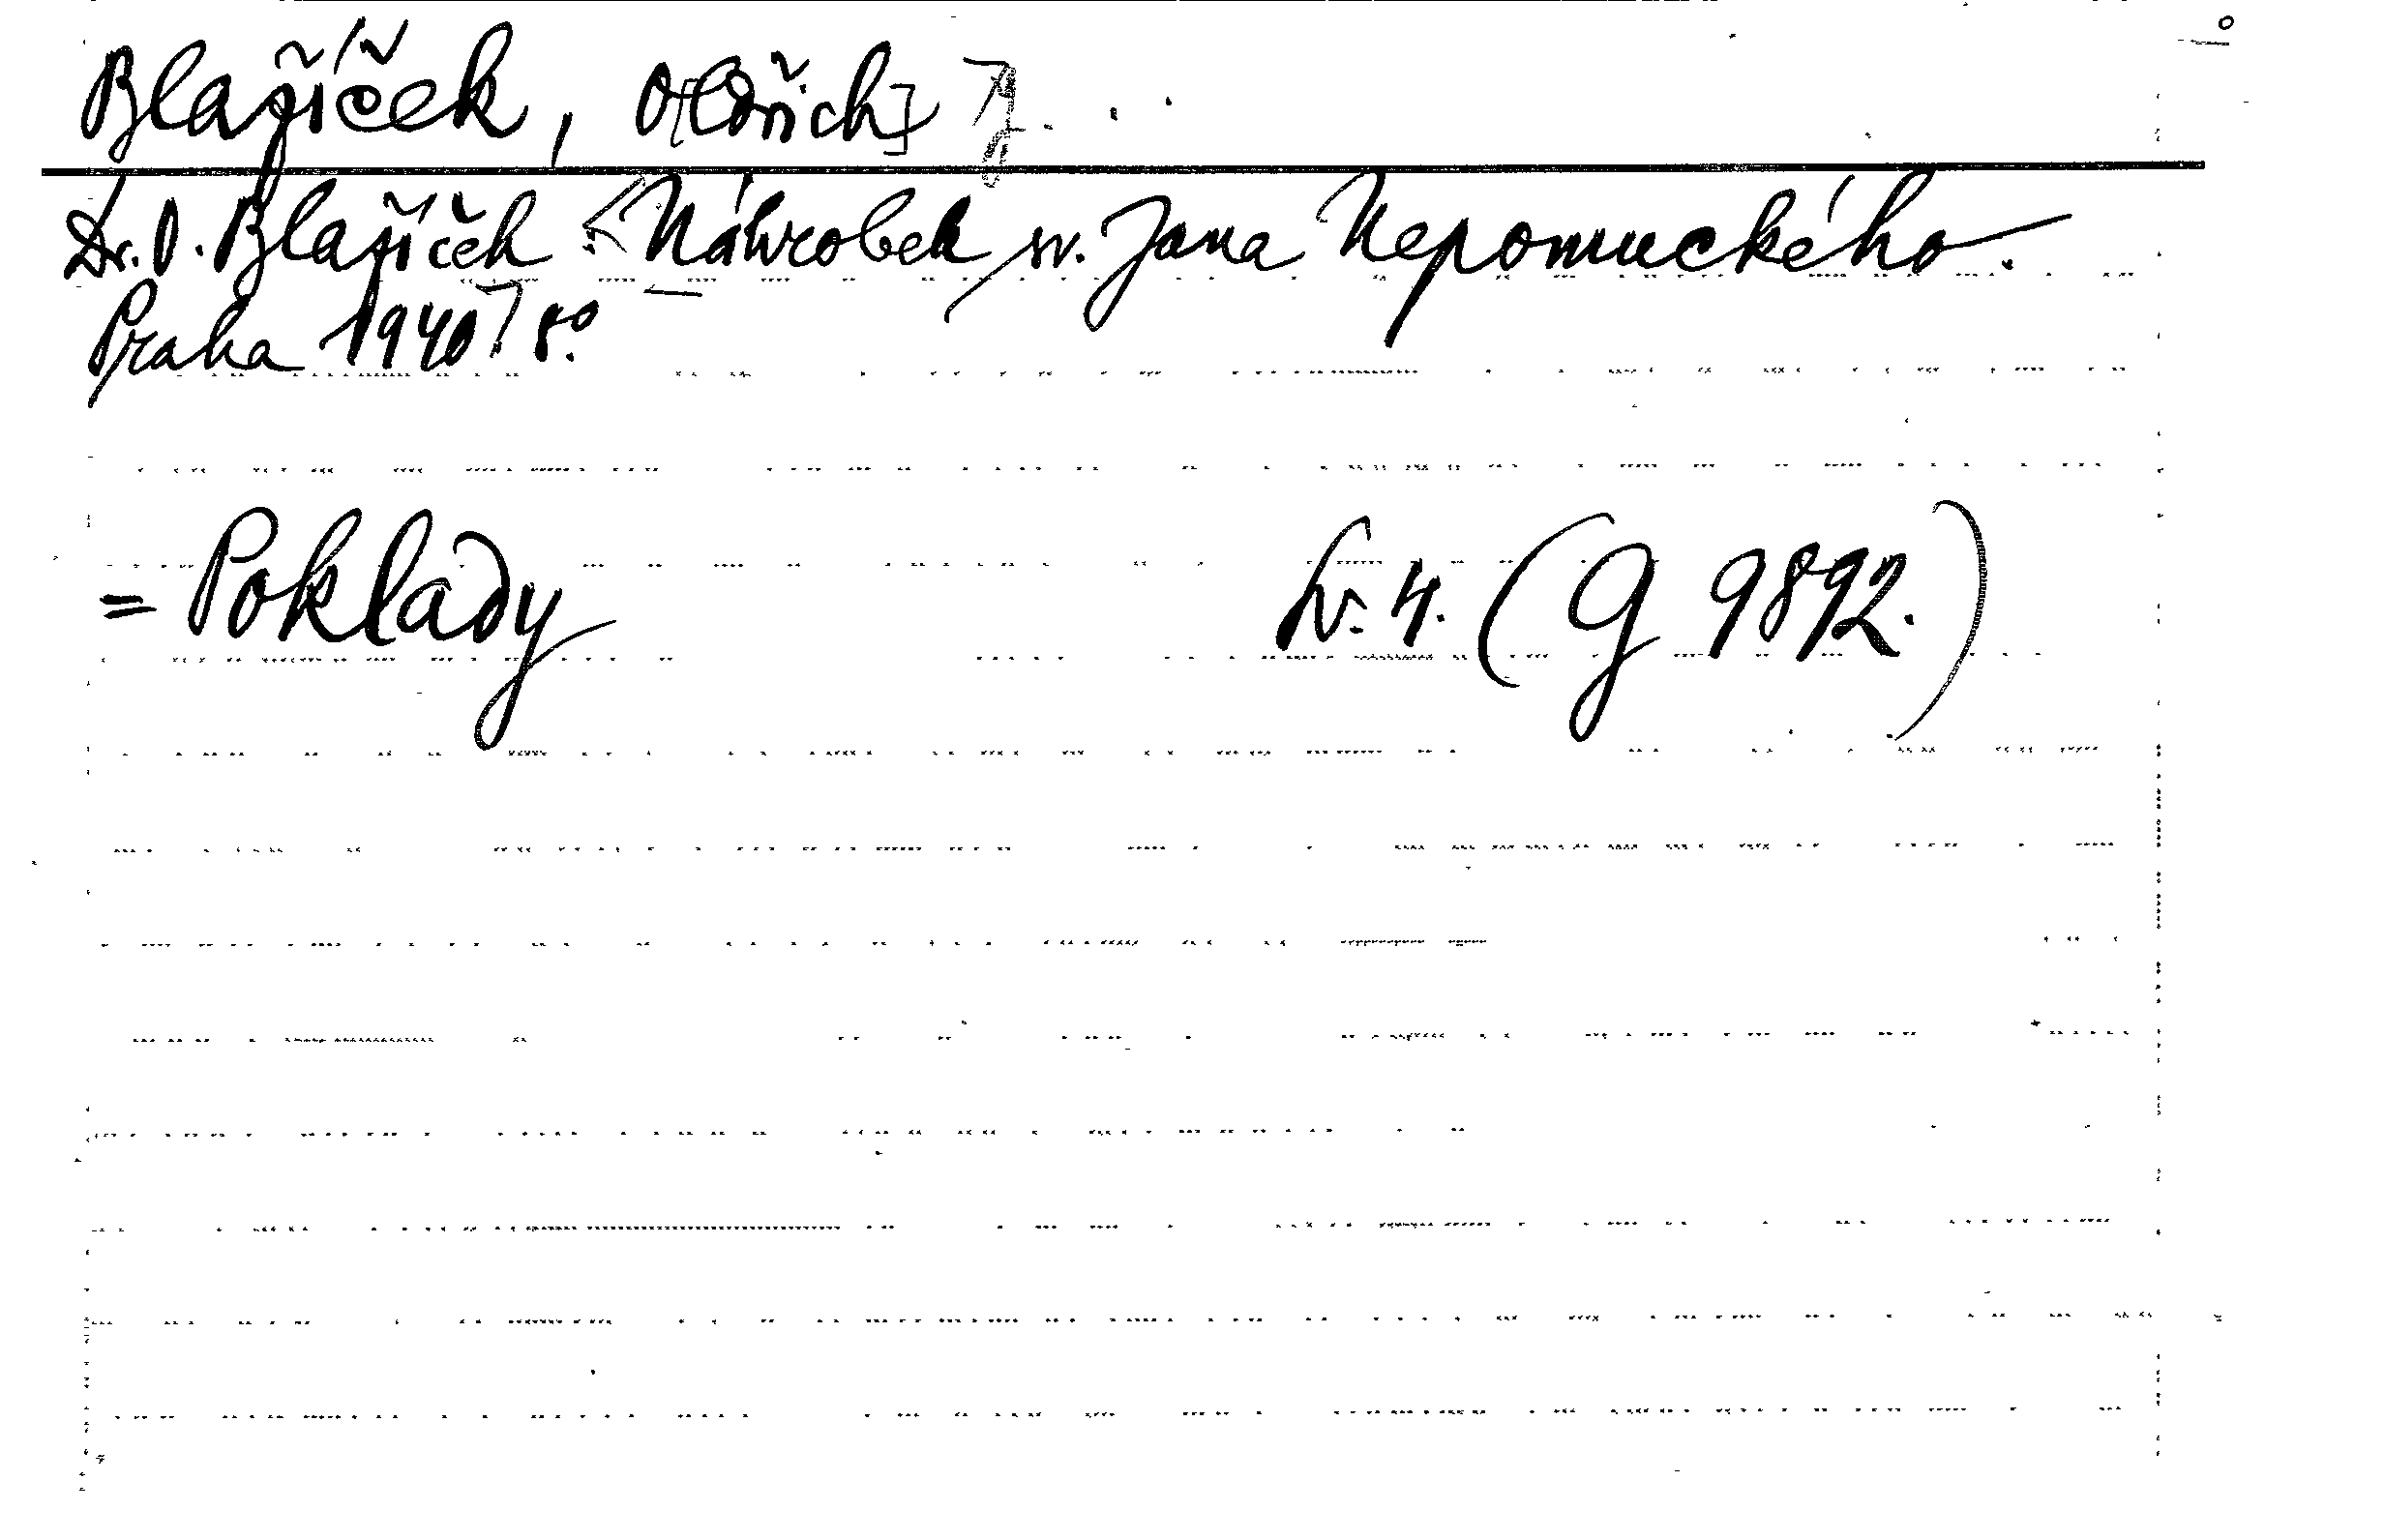 Blažíček, O[ldřich] J.
Dr. O. Blažíček: Náhrobek sv. Jana Nepomuckého.
Praha 1940 8º.
= Poklady sv. 4. (G 9892.)